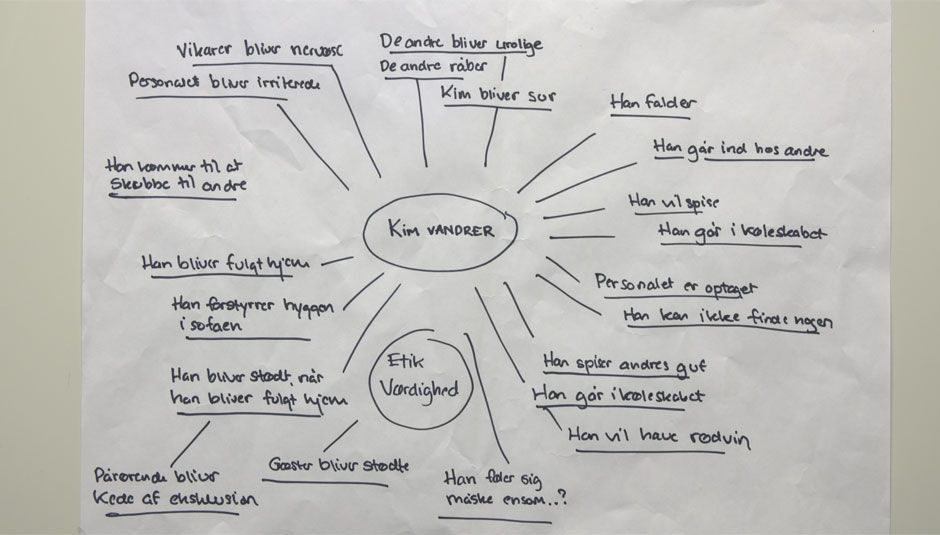 Vikarer bliver nervøse
Personalet bliver irriterede
De andre bliver urolige
De andre råber
Kim bliver sur
Han falder
Han går ind hos andre
Han vil spise
Han går i køleskabet
Personalet er optaget
Han kan ikke finde nogen
Han spiser andres guf
Han går i køleskabet
Han vil have rødvin
Han føler sig
måske ensom..?
Gæster bliver stødte
Pårørende bliver
kede af eksklusion
Han bliver stødt, når
han bliver fulgt hjem
Han forstyrrer hyggen
i sofaen
Han bliver fulgt hjem
Han kommer til at
skubbe til andre
KIM VANDRER
Etik
Værdighed